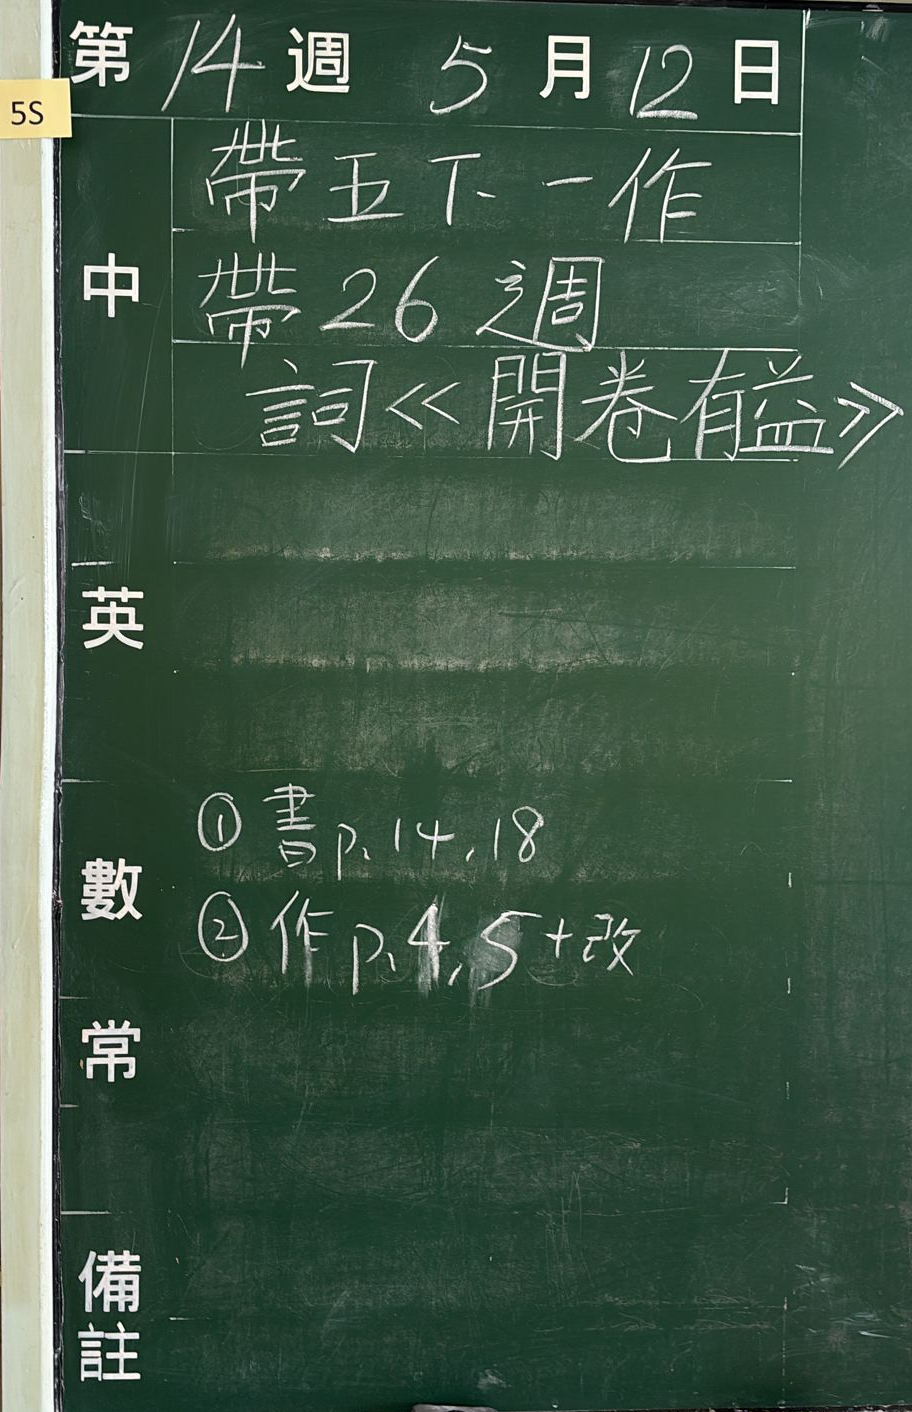 第14週 5月12日
5S
中
帶五下一作
帶26週
詞《開卷有益》
英
數
① 書p.14,18
② 作p.4,5+改
常
備註